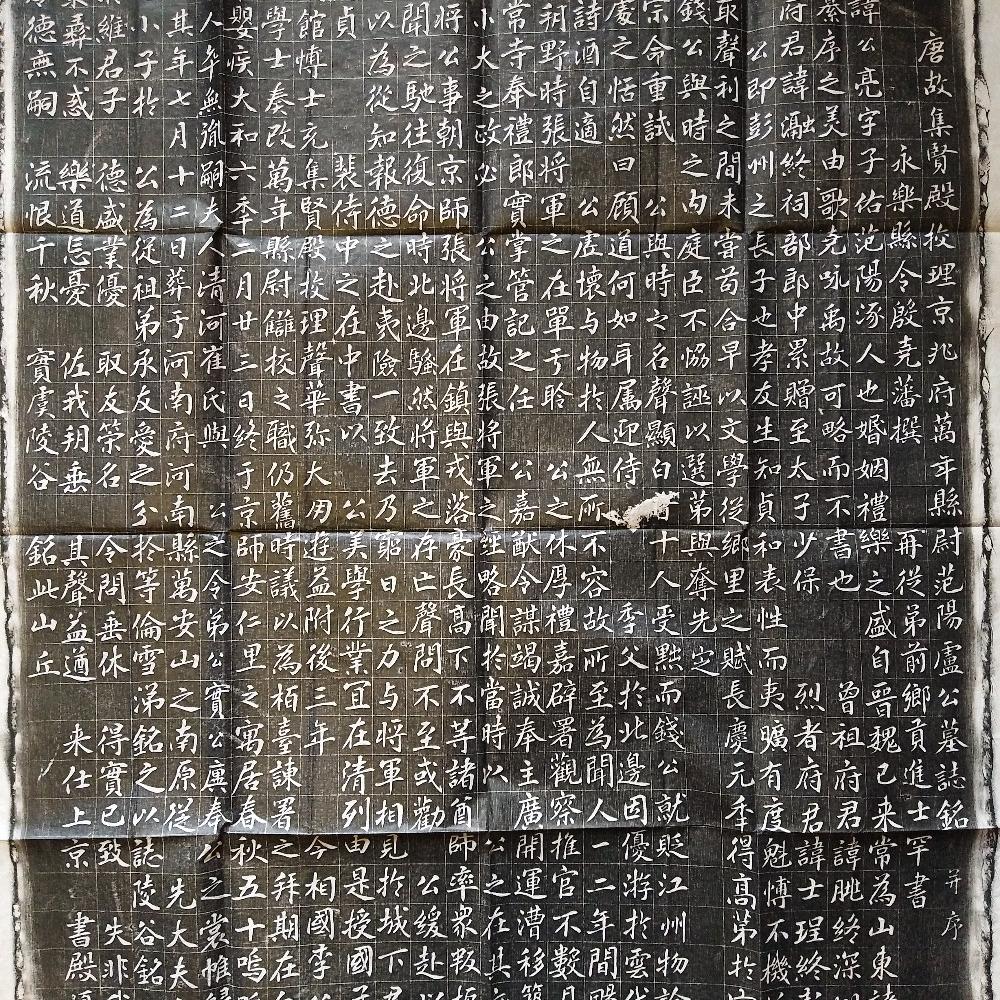 唐故集賢殿挍理京兆府萬年縣尉范陽盧公墓誌銘 并序
永樂縣令殷堯藩撰 再從弟前鄉貢進士罕書
諱公亮字子佑范陽涿人也婚姻禮樂之盛自晉魏已来常為山東
序之美由歌堯咏禹故可略而不書也 曾祖府君諱朓終深
府君諱瀜終祠部郎中累贈至太子少保 烈者府君諱士珵終彭
公即彭州之長子也孝友生知貞和表性而夷曠有度魁博不機
取聲利之間未嘗苟合早以文學從鄉里之賦長慶元年得高第於
錢公與時之內庭臣不恊誣以選第與奪先定
宗命重試 公與時之名聲顯白 十人受黜而錢公就貶江州物論
處之恬然曰顧道何如耳属迎侍 季父於北邊因優游於雲代
詩酒自適 公虛壞与物於人無所不容故所至為聞人一二年間
朔野時張將軍之在單于聆 公之休厚禮嘉辟署觀察推官不數月
常寺奉禮郎實掌管記之任 公嘉猷令謀竭誠奉主廣開運漕移
小大之政必 公之由故張將軍之經略聞於當時以 公之在其
將公事朝京師張將軍在鎮與戎落豪長高下不等諸酋師率衆叛
聞之馳往復命時北邊騷然將軍之存亡聲問不至或勸 公緩赴以
以為從知報德之赴夷險一致去乃窮日之力与將軍相見於城下
貞 裴侍中之在中書以 公美學行業宜在清列由是授國子
館博士充集賢殿挍理聲華弥大毌遊益附後三年 今相國李公
學士奏改萬年縣尉讎挍之職仍舊時議以為栢臺諫署之拜期在
嬰疾大和六年二月廿三日終于京師安仁里之寓居春秋五十嗚
人卒無胤嗣夫人清河崔氏與 公之令弟公實公廙奉公之裳帷
其年七月十二日葬于河南府河南縣萬安山之南原從 先大夫
小子於 公為從祖弟承友愛之分於等倫雪涕銘之以誌陵谷銘
維君子 德盛業優 取友榮名 令問垂休 得實已致 失非
彝不惑 樂道忘憂 佐我朔垂 其聲益遒 来仕上京 書殿
德無嗣 流恨千秋 實虞陵谷 銘此山丘